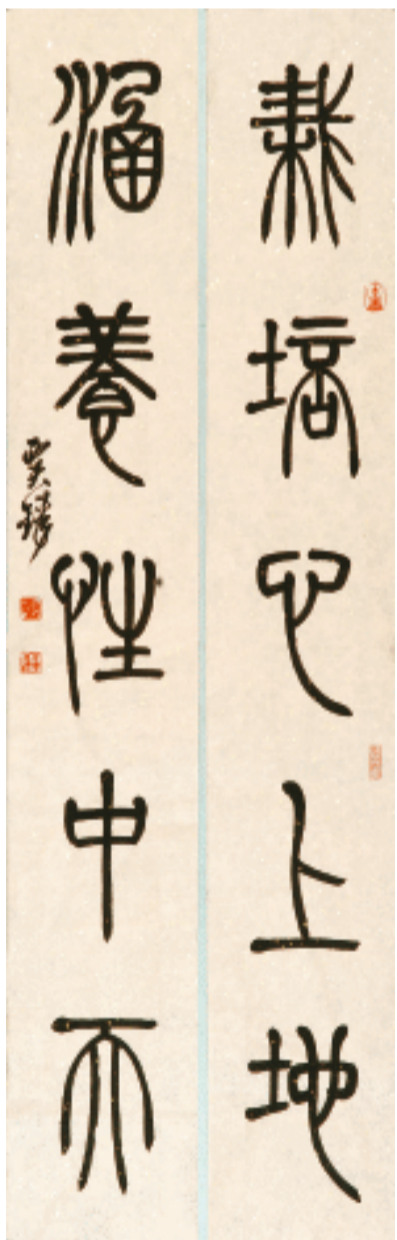 栽培心上地
涵養性中天